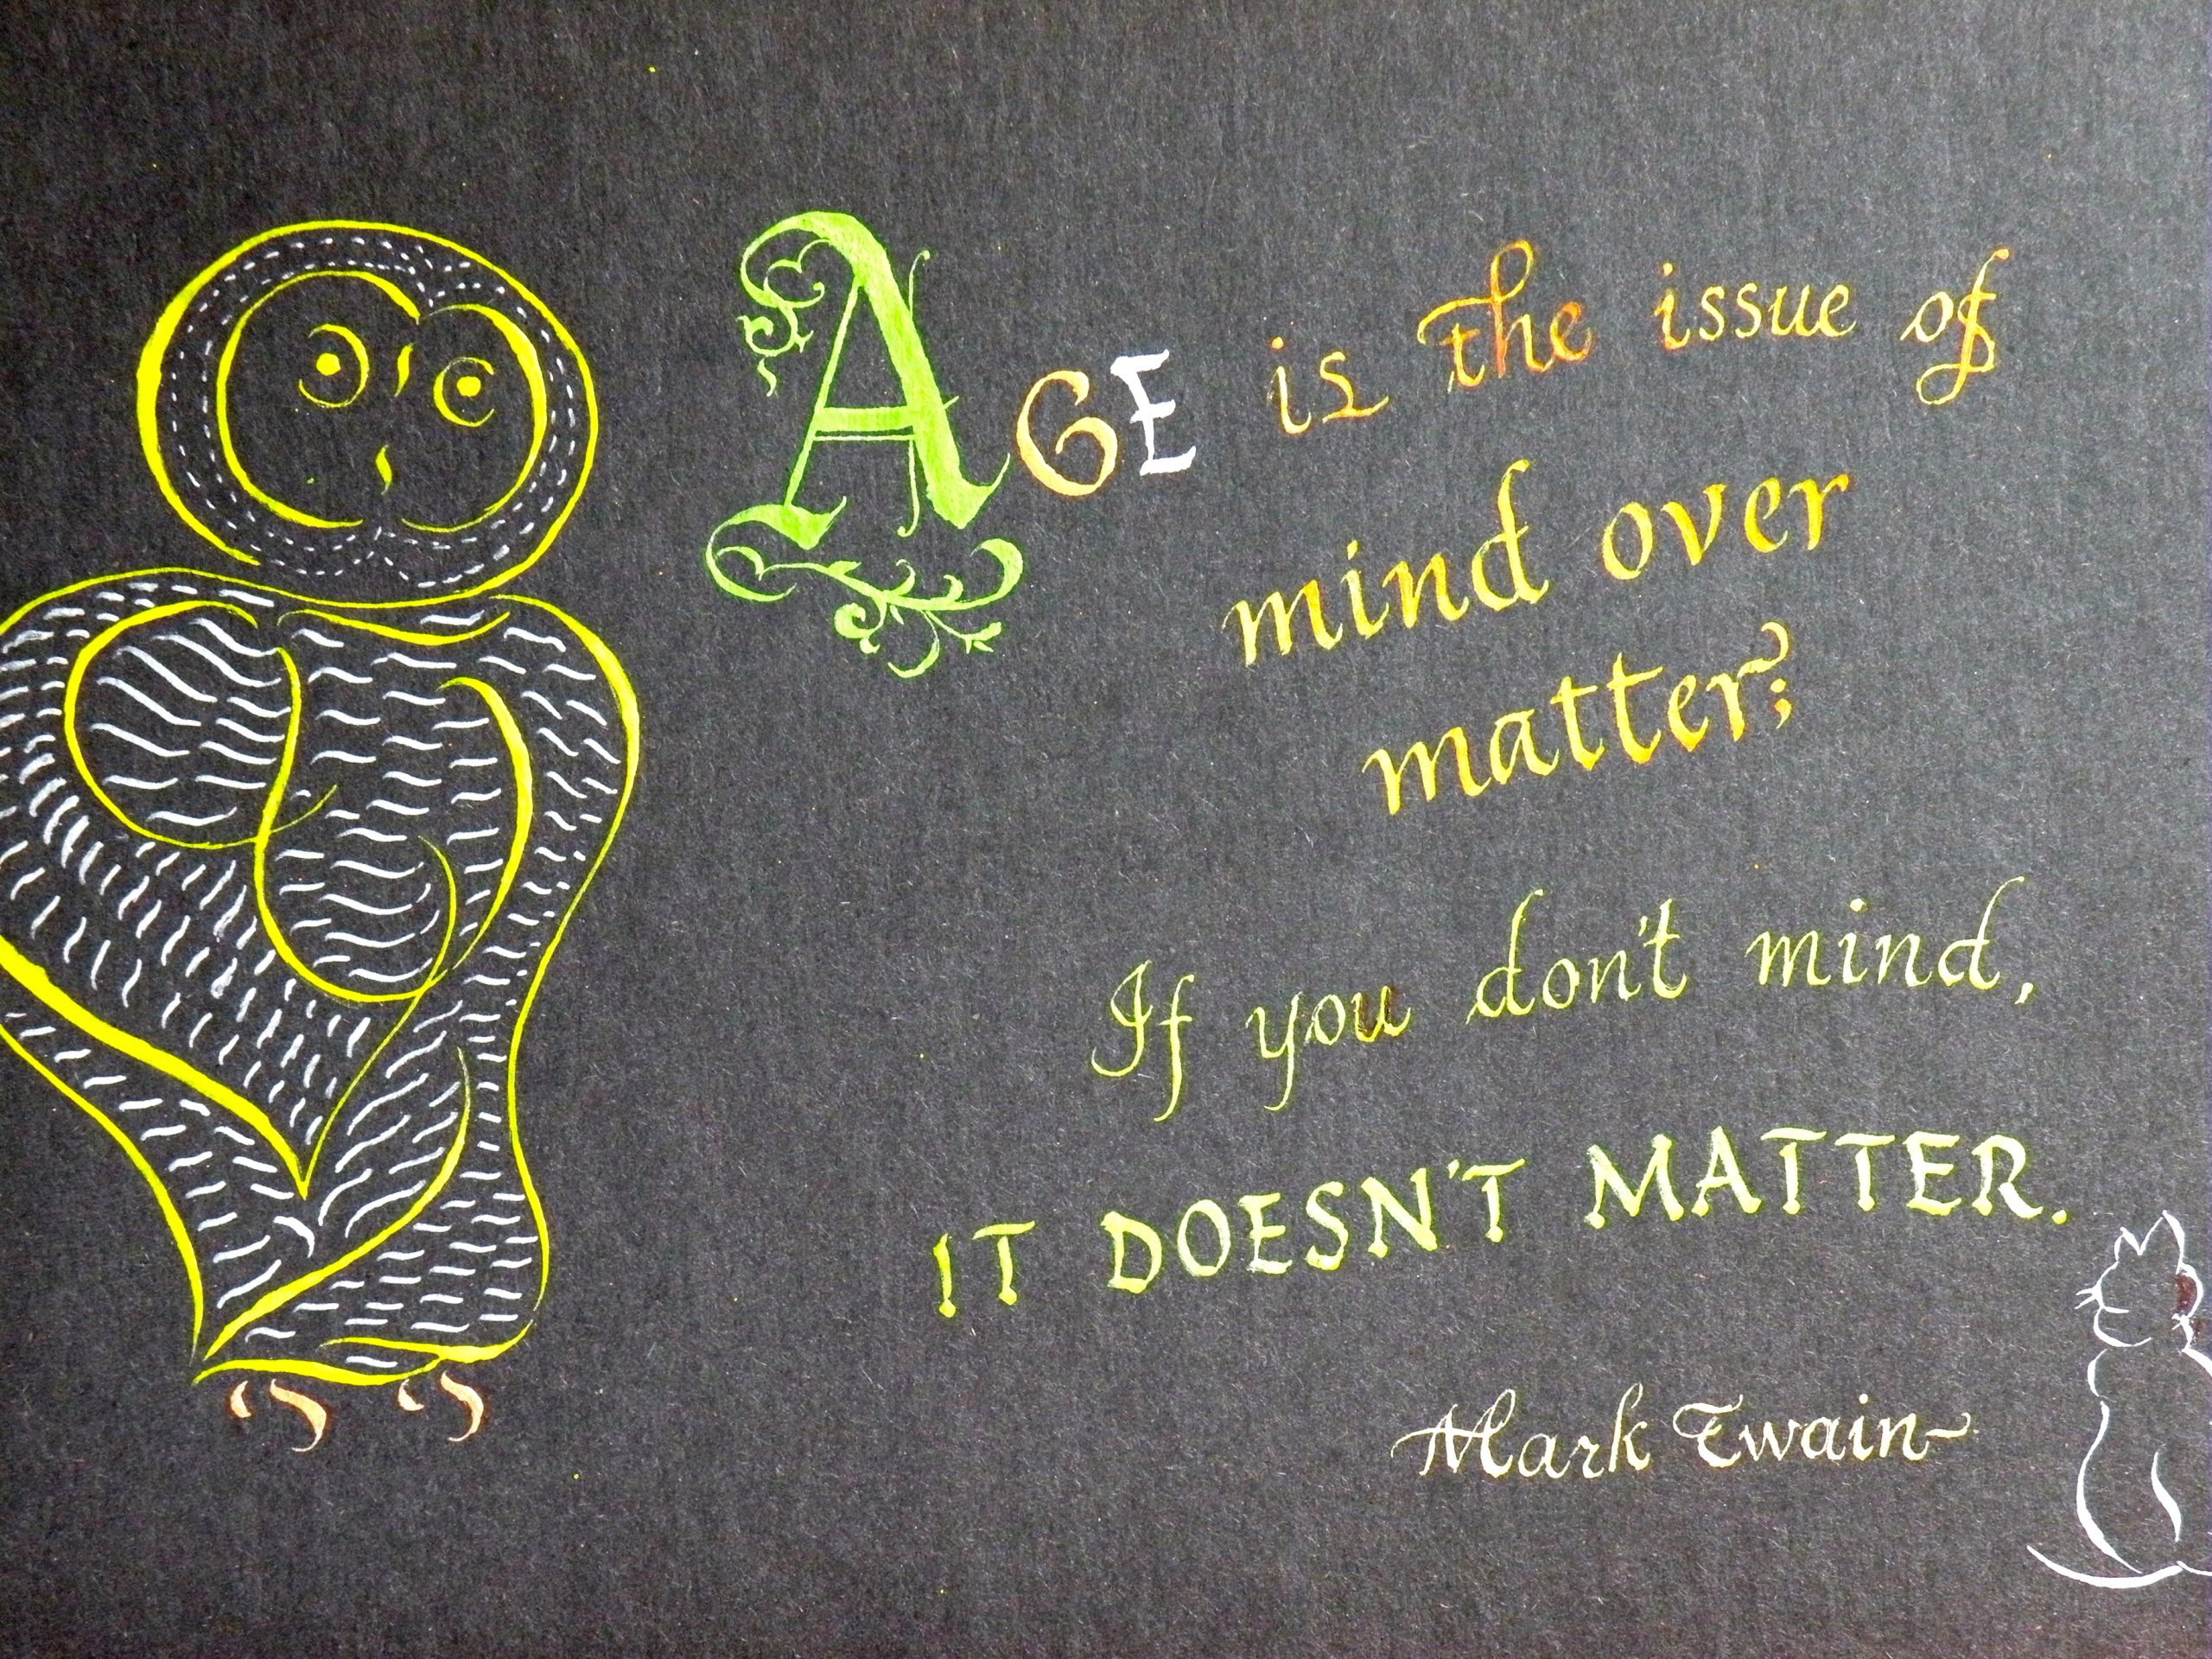 AGE is the issue of
mind over
matter;
If you don't mind,
IT DOESN'T MATTER.
Mark Twain